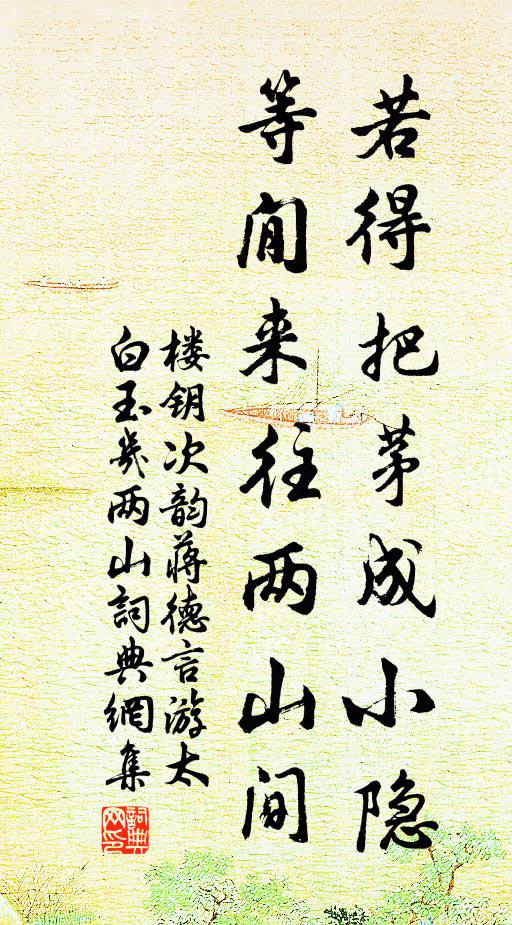 若得把茅成小隐
等闲来往两山间
楼钥次韵蒋德言游太
白玉几两山詞典網集
詞典网印